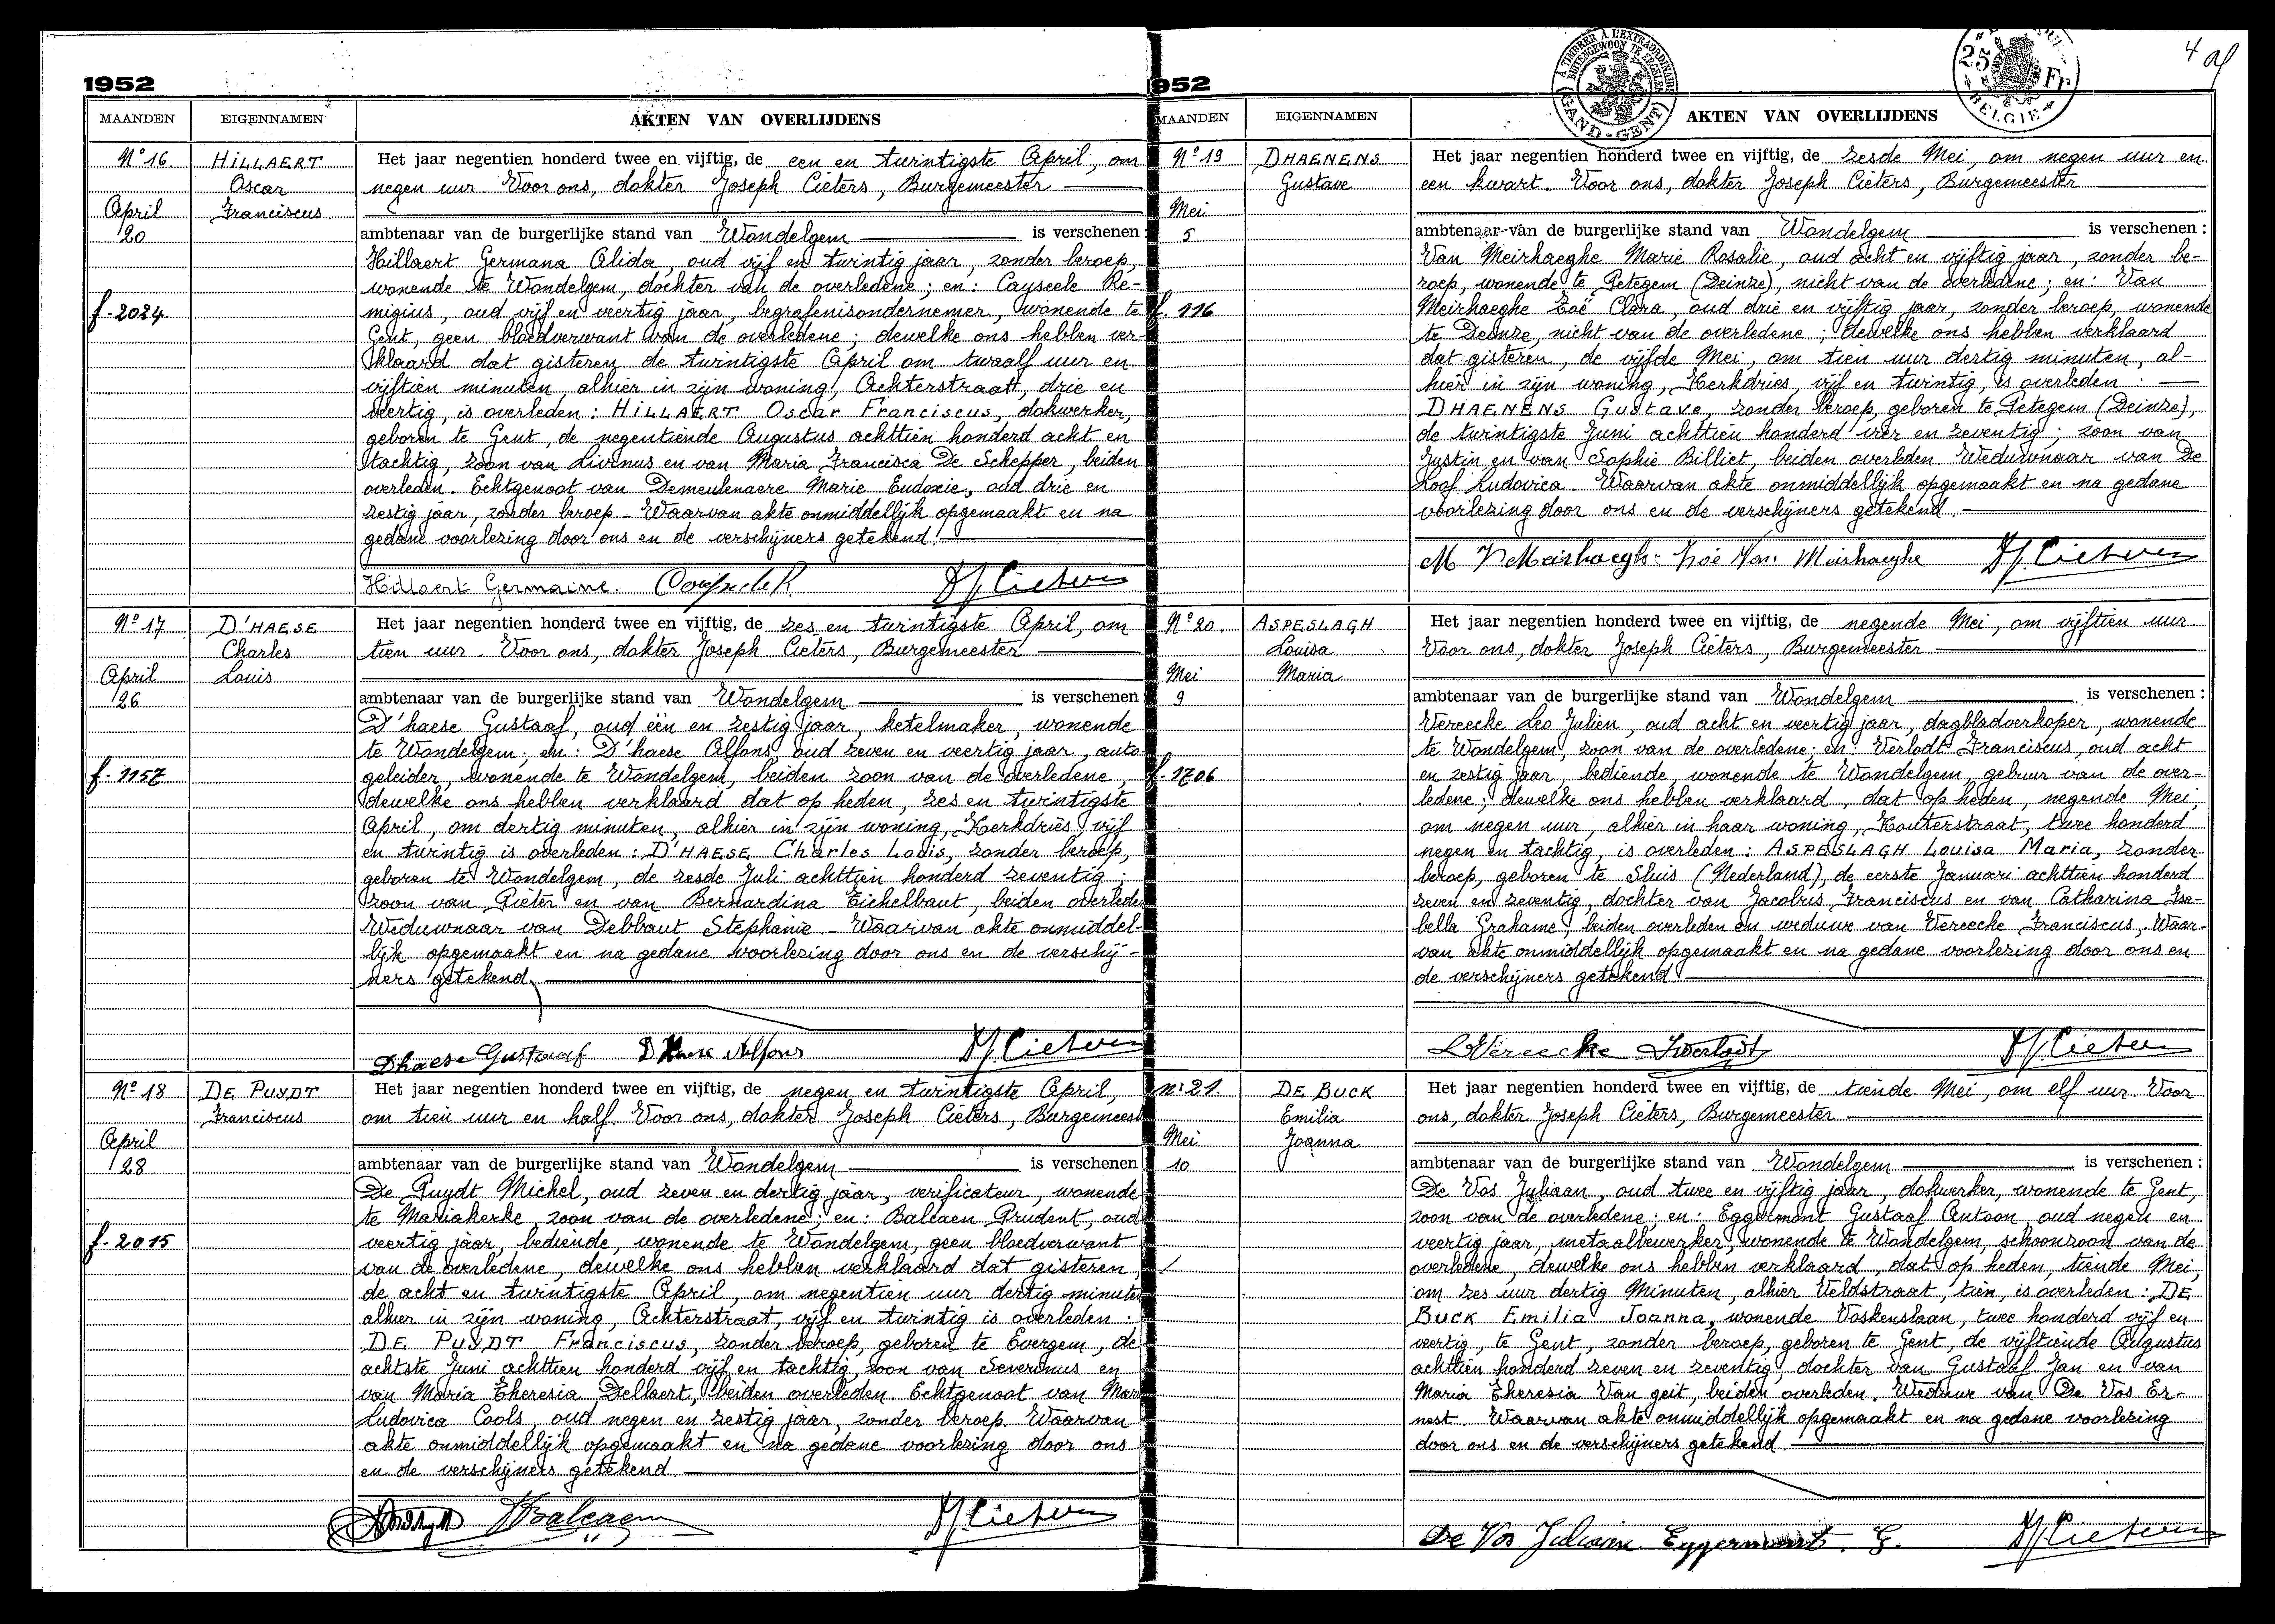 1952
MAANDEN
EIGENNAMEN
AKTEN VAN OVERLIJDENS
Nº 16
April
20
f. 2024
HILLAERT
Oscar
Franciscus.
Het jaar negentien honderd twee en vijftig, de een en twintigste April, om
negen uur Voor ons, dokter Joseph Cieters, Burgemeester
ambtenaar van de burgerlijke stand van Wondelgem is verschenen
Hillaert Germana Alida, oud vijf en twintig jaar, zonder beroep,
wonende te Wondelgem, dochter van de overledene; en: Cayseele Re-
migius, oud vijf en veertig jaar, begrafenisondernemer, wonende te
Gent, geen bloedverwant van de overledene; dewelke ons hebben ver-
klaard dat gisteren de twintigste April om twaalf uur en
vijftien minuten, alhier in zijn woning, Achterstraat, drie en
veertig, is overleden: HILLAERT Oscar Franciscus, dokwerker,
geboren te Gent, de negentiende Augustus achttien honderd acht en
tachtig, zoon van Livinus en van Maria Francisca De Schepper, beiden
overleden. Echtgenoot van Demeulenaere Marie Eudoxie, oud drie en
zestig jaar, zonder beroep - Waarvan akte onmiddellijk opgemaakt en na
gedane voorlezing door ons en de verschijners getekend.
Hillaert Germaine.
Nº 17
April
26
f. 1157
D'HAESE
Charles
Louis
Het jaar negentien honderd twee en vijftig, de zes en twintigste April, om
tien uur - Voor ons, dokter Joseph Cieters, Burgemeester
ambtenaar van de burgerlijke stand van Wondelgem is verschenen
D'haese Gustaaf, oud één en zestig jaar, ketelmaker, wonende
te Wondelgem; en: D'haese Alfons, oud zeven en veertig jaar, auto-
geleider, wonende te Wondelgem, beiden zoon van de overledene,
dewelke ons hebben verklaard dat op heden, zes en twintigste
April, om dertig minuten, alhier in zijn woning, Kerkdries, vijf
en twintig is overleden: D'HAESE Charles Louis, zonder beroep,
geboren te Wondelgem, de zesde Juli achttien honderd zeventig;
zoon van Pieter en van Bernardina Eichelbaut, beiden overlede
Weduwnaar van Debbaut Stephanie. - Waarvan akte onmiddel-
lijk opgemaakt en na gedane voorlezing door ons en de verschij-
ners getekend.
Dhaese Gustaaf D'Haese Alfons J. Cieters
Nº 18
April
28
f. 2015
DE PUYDT
Franciscus
Het jaar negentien honderd twee en vijftig, de negen en twintigste April,
om tien uur en half. Voor ons, dokter Joseph Cieters, Burgemeest
ambtenaar van de burgerlijke stand van Wondelgem is verschenen
De Puydt Michel, oud zeven en dertig jaar, verificateur, wonende
te Mariakerke, zoon van de overledene; en: Balcaen Prudent, oud
veertig jaar, bediende, wonende te Wondelgem, geen bloedverwant
van de overledene, dewelke ons hebben verklaard dat gisteren,
de acht en twintigste April, om negentien uur dertig minuten
alhier in zijn woning, Achterstraat, vijf en twintig is overleden:
DE PUYDT Franciscus, zonder beroep, geboren te Evergem, de
achtste Juni achttien honderd vijf en tachtig, zoon van Severinus en
van Maria Theresia Dellaert, beiden overleden. Echtgenoot van Mar
Ludovica Cools, oud negen en zestig jaar, zonder beroep. Waarvan
akte onmiddellijk opgemaakt en na gedane voorlezing door ons
en de verschijners getekend
Balcaen J. Cieters
952
4
À TIMBRER À L'EXTRAORDINAIRE
BUITENGEWOON TE ZEGELEN
(GAND-GENT)
25 Fr
BELGIE
MAANDEN
EIGENNAMEN
AKTEN VAN OVERLIJDENS
Nº 19
Mei
5
f. 116
DHAENENS
Gustave
Het jaar negentien honderd twee en vijftig, de zesde Mei, om negen uur en
een kwart. Voor ons, dokter Joseph Cieters, Burgemeester
ambtenaar van de burgerlijke stand van Wondelgem is verschenen:
Van Meirhaeghe Marie Rosalie, oud acht en vijftig jaar, zonder be-
roep, wonende te Petegem (Deinze), nicht van de overledene; en: Van
Meirhaeghe Zoë Clara, oud drie en vijftig jaar, zonder beroep, wonende
te Deinze, nicht van de overledene; dewelke ons hebben verklaard
dat gisteren, de vijfde Mei, om tien uur dertig minuten, al-
hier in zijn woning, Kerkdries, vijf en twintig, is overleden:
DHAENENS Gustave, zonder beroep, geboren te Petegem (Deinze),
de twintigste Juni achttien honderd vier en zeventig; zoon van
Justin en van Sophie Billiet, beiden overleden. Weduwnaar van De
Loof Ludovica. Waarvan akte onmiddellijk opgemaakt en na gedane
voorlezing door ons en de verschijners getekend.
M V Meirhaeghe Zoë Van Meirhaeghe J. Cieters
Nº 20
Mei
9
f. 1706
ASPESLAGH
Louisa
Maria
Het jaar negentien honderd twee en vijftig, de negende Mei, om vijftien uur.
Voor ons, dokter Joseph Cieters, Burgemeester
ambtenaar van de burgerlijke stand van Wondelgem is verschenen:
Vereecke Leo Julien, oud acht en veertig jaar, dagbladverkoper, wonende
te Wondelgem, zoon van de overledene; en: Verlodt Franciscus, oud acht
en zestig jaar, bediende, wonende te Wondelgem, gebuur van de over-
ledene; dewelke ons hebben verklaard, dat op heden, negende Mei,
om negen uur, alhier in haar woning, Kouterstraat, twee honderd
negen en tachtig, is overleden: ASPESLAGH Louisa Maria, zonder
beroep, geboren te Sluis (Nederland), de eerste Januari achttien honderd
zeven en zeventig, dochter van Jacobus Franciscus en van Catharina Isa-
bella Grahame, beiden overleden en weduwe van Vereecke Franciscus. Waar-
van akte onmiddellijk opgemaakt en na gedane voorlezing door ons en
de verschijners getekend.
L Vereecke F Verlodt J. Cieters
nº 21.
Mei
10
DE BUCK
Emilia
Joanna
Het jaar negentien honderd twee en vijftig, de tiende Mei, om elf uur. Voor
ons, dokter Joseph Cieters, Burgemeester
ambtenaar van de burgerlijke stand van Wondelgem is verschenen:
De Vos Juliaan, oud twee en vijftig jaar, dokwerker, wonende te Gent,
zoon van de overledene; en: Eggermont Gustaaf Antoon, oud negen en
veertig jaar, metaalbewerker, wonende te Wondelgem, schoonzoon van de
overledene, dewelke ons hebben verklaard, dat op heden, tiende Mei,
om zes uur dertig Minuten, alhier Veldstraat, tien, is overleden: DE
BUCK Emilia Joanna, wonende Voskenslaan, twee honderd vijf en
veertig, te Gent, zonder beroep, geboren te Gent, de vijftiende Augustus
achttien honderd zeven en zeventig, dochter van Gustaaf Jan en van
Maria Theresia Van geit, beiden overleden. Weduwe van De Vos Er-
nest. Waarvan akte onmiddellijk opgemaakt en na gedane voorlezing
door ons en de verschijners getekend
De Vos Juliaan Eggermont. G. J. Cieters